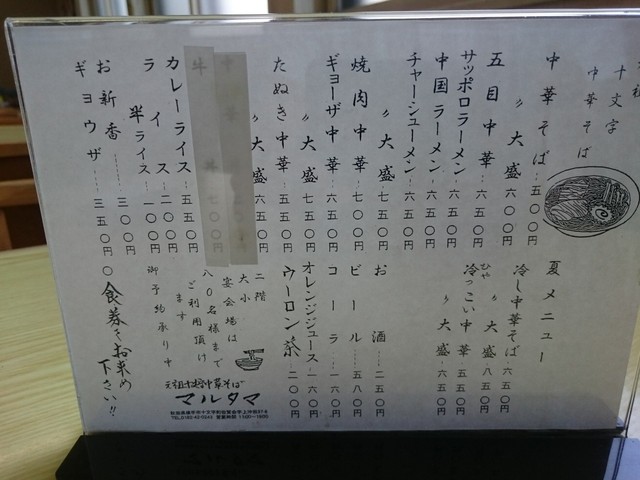 十文字
中華そば
中華そば…五〇〇円
〃大盛 六〇〇円
五目中華…六五〇円
サッポロラーメン 六五〇円
中国ラーメン 六五〇円
チャーシューメン 六五〇円
〃大盛 七五〇円
焼肉中華…七〇〇円
ギョーザ中華…六五〇円
〃大盛 七五〇円
たぬき中華…五五〇円
〃大盛 六五〇円
カレーライス 五五〇円
ライス 二〇〇円
半ライス 一〇〇円
お新香……三〇〇円
ギョウザ……三五〇円
夏メニュー
冷し中華そば 六五〇円
〃大盛 八五〇円
ひや
冷っこい中華 五五〇円
〃大盛 六五〇円
お酒 二五〇円
ビール 五八〇円
コーラ 一六〇円
オレンジジュース 一六〇円
ウーロン茶 二〇〇円
二階
大小
宴会場は
八〇名様まで
ご利用頂け
ます
御予約承り中
〇食券をお求め
下さい!!
マルタマ